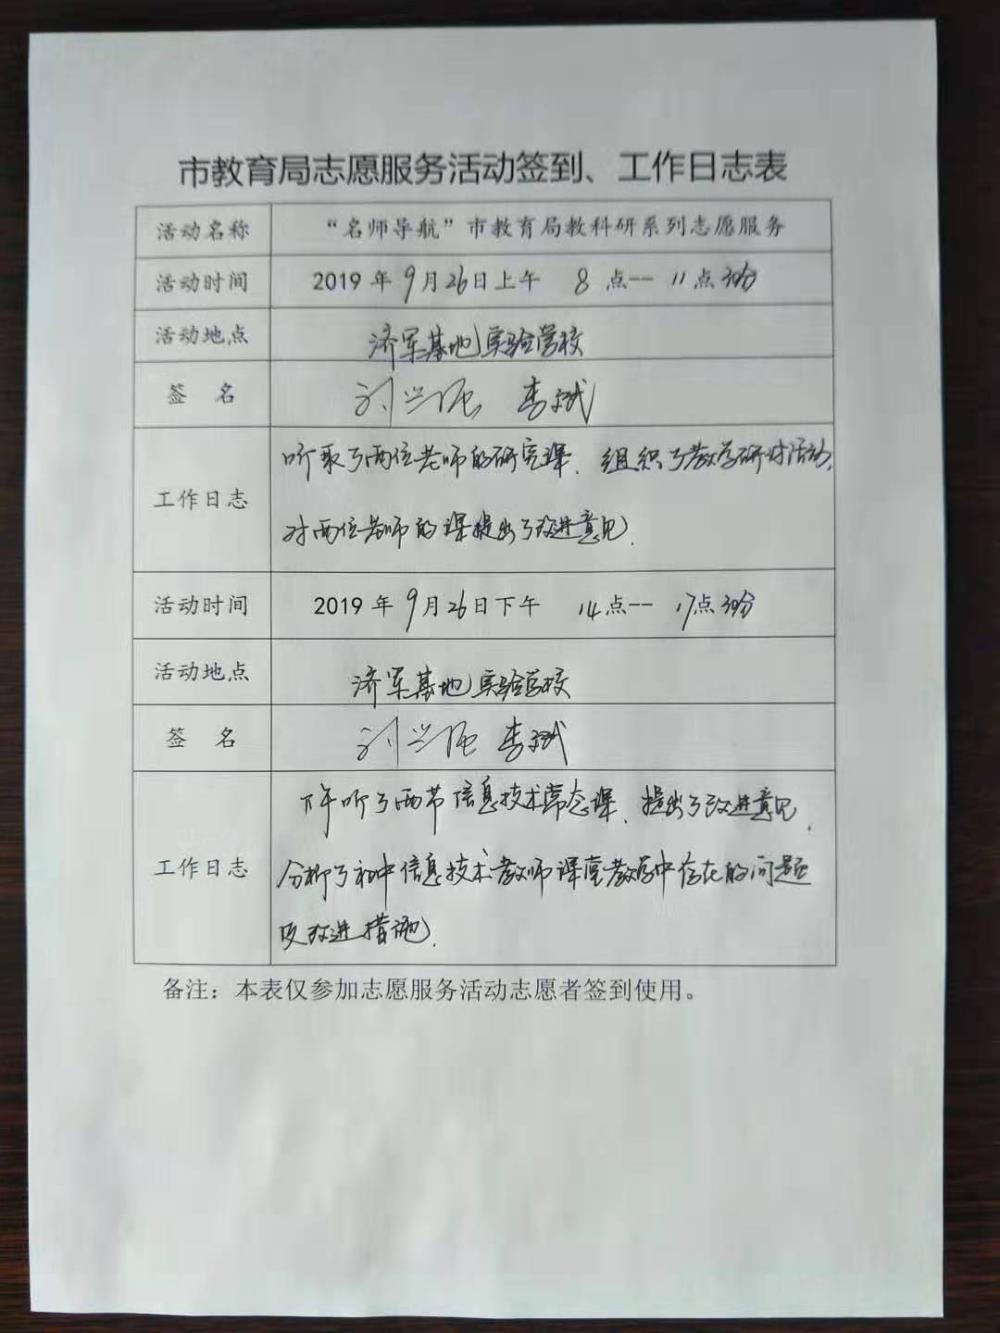 市教育局志愿服务活动签到、工作日志表
活动名称 “名师导航”市教育局教科研系列志愿服务
活动时间 2019年9月26日上午 8点-- 11点30分
活动地点 济军基地实验学校
签 名 刘兴强 李斌
听取了两位老师的研究课，组织了教学研讨活动，
工作日志
对两位老师的课提出了改进意见．
活动时间 2019年9月26日下午 14点-- 17点30分
活动地点 济军基地实验学校
签 名 刘兴强 李斌
下午听了两节信息技术常态课，提出了改进意见，
工作日志 分析了初中信息技术教师课堂教学中存在的问题
及改进措施．
备注：本表仅参加志愿服务活动志愿者签到使用。